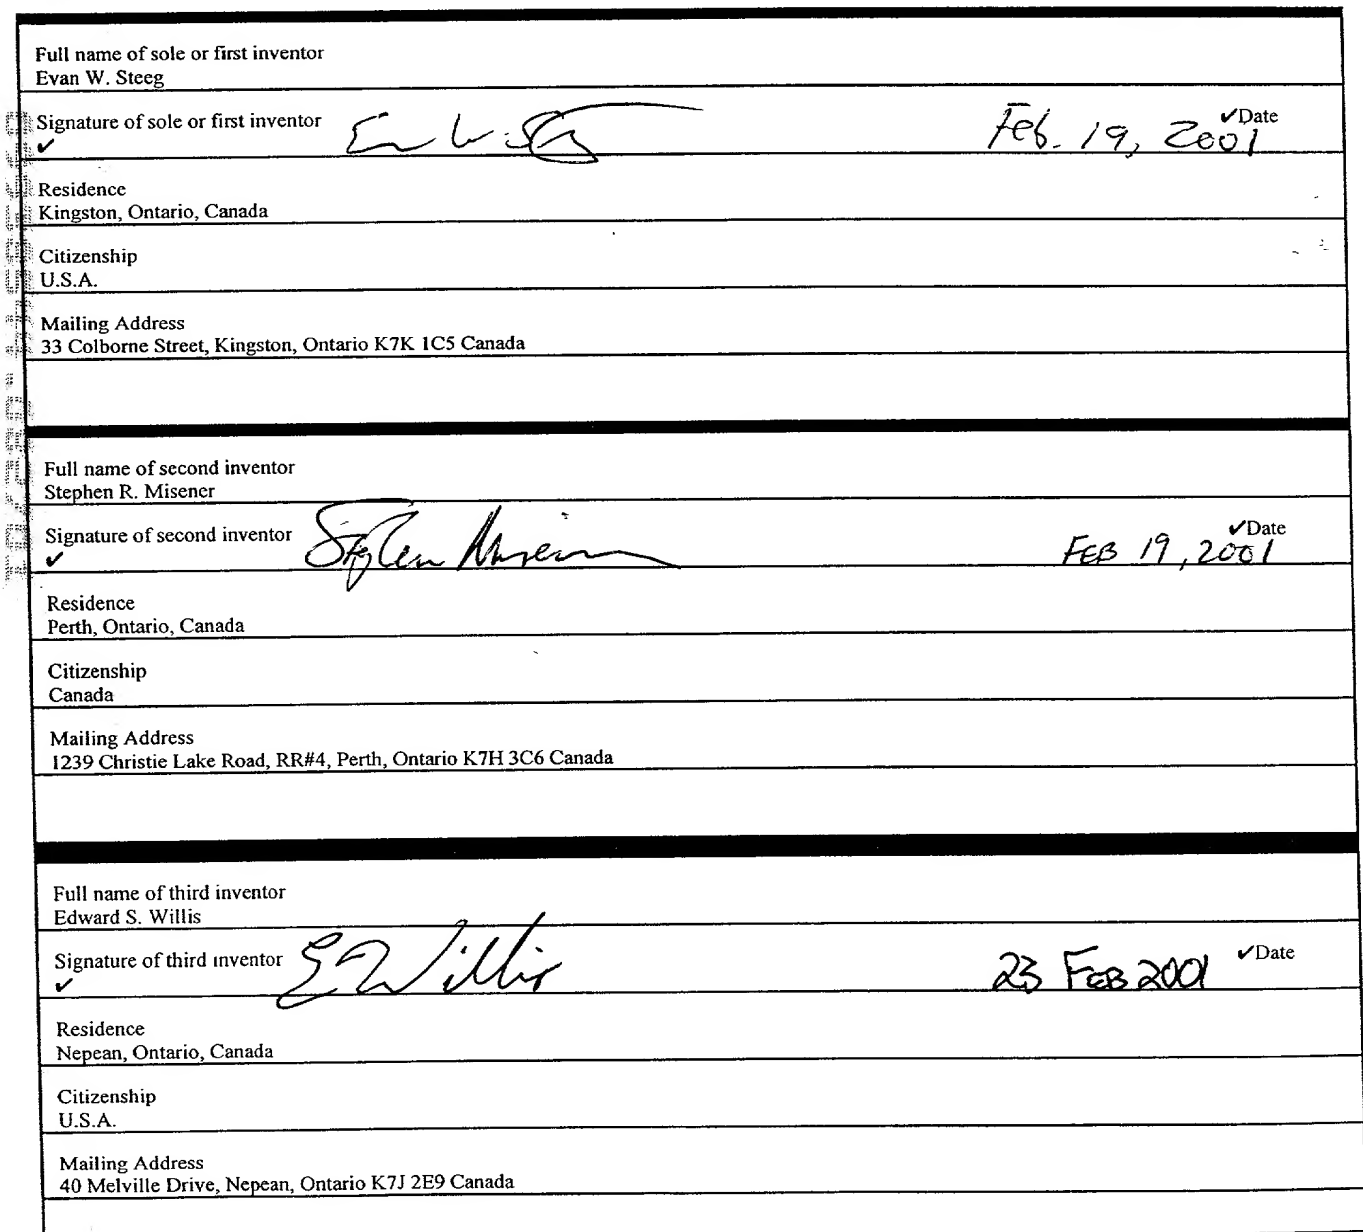 Full name of sole or first inventor
Evan W. Steeg
Signature of sole or first inventor ✓Date
✓ Feb. 19, 2001
Residence
Kingston, Ontario, Canada
Citizenship
U.S.A.
Mailing Address
33 Colborne Street, Kingston, Ontario K7K 1C5 Canada
Full name of second inventor
Stephen R. Misener
Signature of second inventor Stephen Misener ✓Date
✓ FEB 19, 2001
Residence
Perth, Ontario, Canada
Citizenship
Canada
Mailing Address
1239 Christie Lake Road, RR#4, Perth, Ontario K7H 3C6 Canada
Full name of third inventor
Edward S. Willis
Signature of third inventor E Willis 23 FEB 2001 ✓Date
✓
Residence
Nepean, Ontario, Canada
Citizenship
U.S.A.
Mailing Address
40 Melville Drive, Nepean, Ontario K7J 2E9 Canada